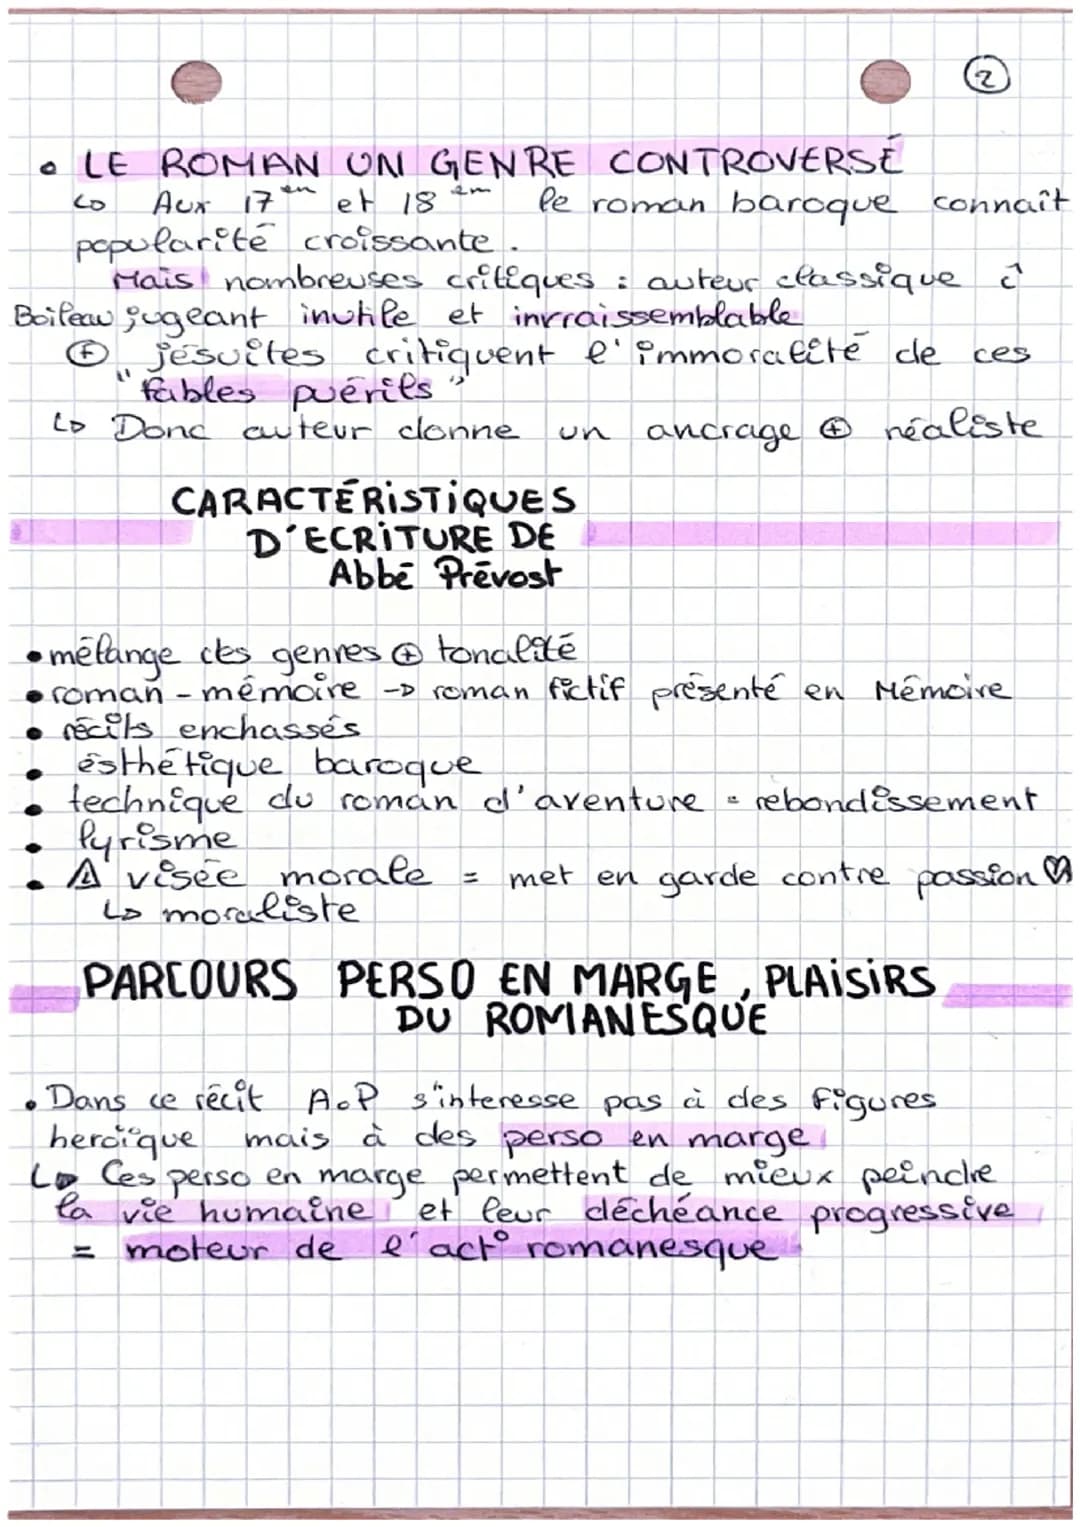 2
• LE ROMAN UN GENRE CONTROVERSÉ
↳ Aux 17em et 18em le roman baroque connaît
popularité croissante.
Mais nombreuses critiques : auteur classique c̑
Boileau jugeant inutile et invraissemblable
⊕ jésuites critiquent l'immoralité de ces
"fables puérils"
↳ Donc auteur donne un ancrage ⊕ réaliste
CARACTÉRISTIQUES
D'ECRITURE DE
Abbé Prévost
• mélange des genres ⊕ tonalité
• roman - mémoire → roman fictif présenté en Mémoire
• récits enchassés
• ésthétique baroque
• technique du roman d'aventure = rebondissement
• lyrisme
• ⚠ visée morale = met en garde contre passion ♡
↳ moraliste
PARCOURS PERSO EN MARGE, PLAISIRS
DU ROMANESQUE
• Dans ce récit A.P s'interesse pas à des figures
heroïque mais à des perso en marge
↳ Ces perso en marge permettent de mieux peindre
la vie humaine et leur déchéance progressive
= moteur de l'act° romanesque